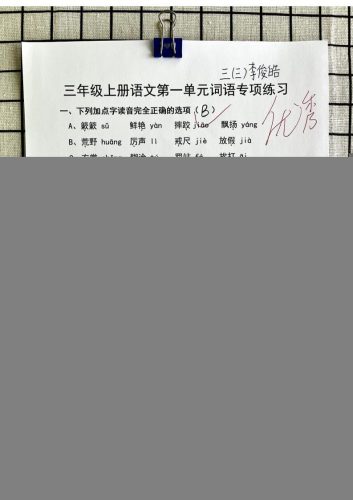 三(三)李俊皓
三年级上册语文第一单元词语专项练习
一、下列加点字读音完全正确的选项(B)
优秀
A、簌簌 sū 鲜艳 yàn 摔跤 jiāo 飘扬 yáng
B、荒野 huāng 厉声 lì 戒尺 jiè 放假 jià